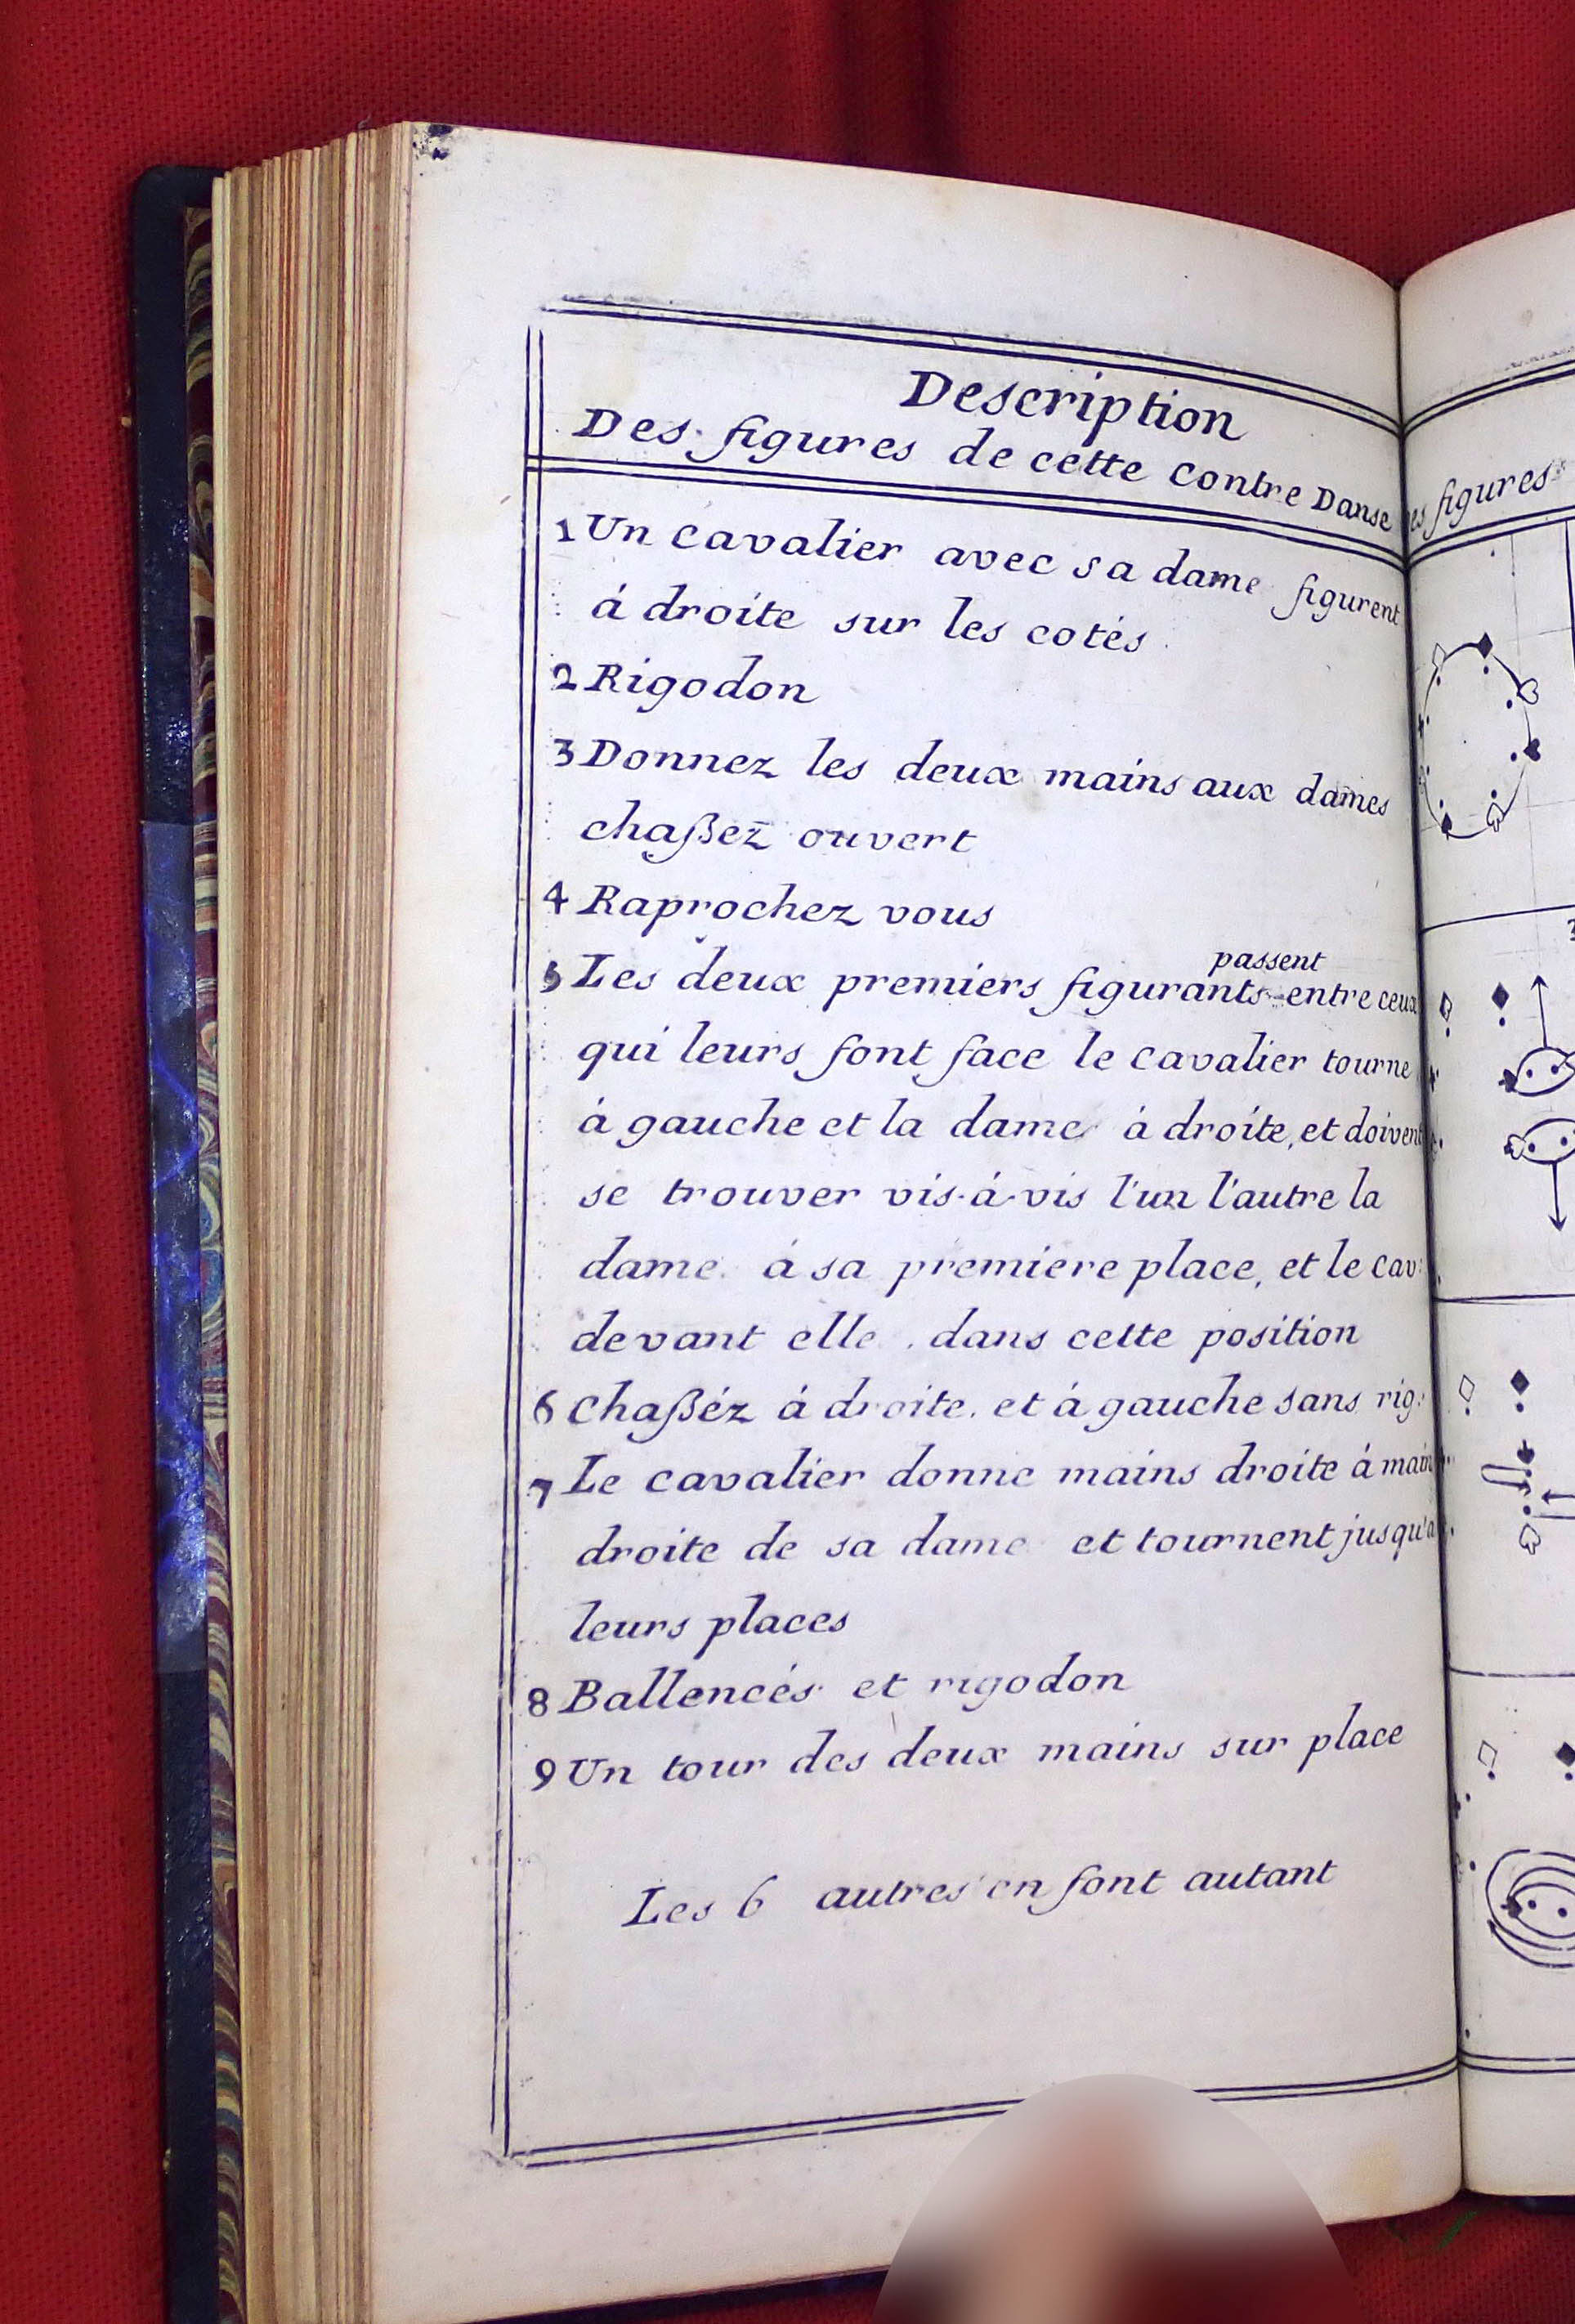 Description
Des figures de cette Contre Danse
1 Un cavalier avec sa dame figurent
à droite sur les cotés
2 Rigodon
3 Donnez les deux mains aux dames
chaßez ouvert
4 Raprochez vous
passent
5 Les deux premiers figurants entre ceux
qui leurs font face le cavalier tourne
à gauche et la dame à droite, et doivent
se trouver vis-à-vis l'un l'autre la
dame à sa premiere place, et le cav:
devant elle. dans cette position
6 Chaßéz à droite. et à gauche sans rig:
7 Le cavalier donne mains droite à main
droite de sa dame et tournent jusqu'a
leurs places
8 Ballencés et rigodon
9 Un tour des deux mains sur place
Les 6 autres en font autant
figures